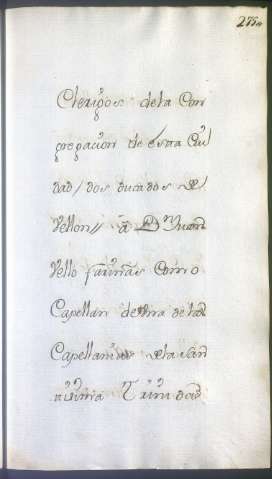 275
Clerigos de la Con
gregacion de esta Ciu
dad / dos ducados de
Vellon // a Dn Juan
Vello fariñas Como
Capellan de una de las
Capellanias de la San
tisima Trinidad